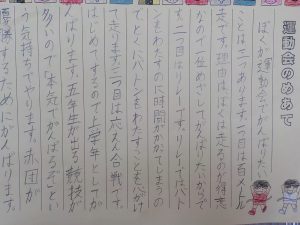 運動会のめあて
ぼくが運動会でがんばりた
いことは二つあります。一つ目は百メートル
走です。理由は、ぼくは走るのが得意
なので一位めざしてがんばりたいからで
す。二つ目はリレーです。リレーではバト
ンをわたすのに時間がかかてしまうの
でとくにバトンをわたすことを心がけ
て走ります。三つ目は応えん合戦です。
はじめてするので上学年としてが
んばります。五年生が出る競技が
多いので「本気でがんばろう」とい
う気持ちでやります。赤団が
優勝するためにがんばります。